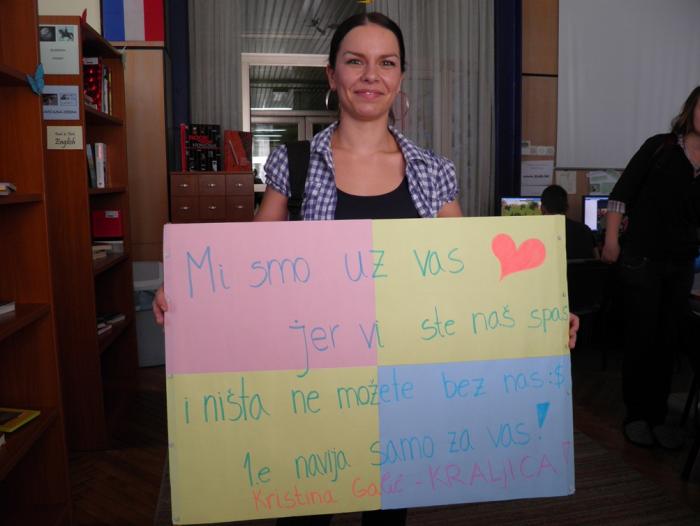 Mi smo uz vas
jer vi ste naš spas
i ništa ne možete bez nas :$
1.e navija samo za vas!
Kristina Galić - KRALJICA!
English